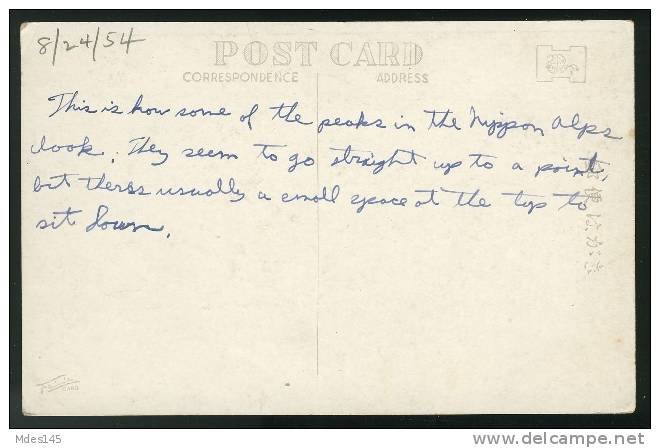 8/24/54
POST CARD
CORRESPONDENCE ADDRESS
This is how some of the peaks in the Nippon Alps
look. They seem to go straight up to a point,
but theres usually a small space at the top to
sit down.
郵便はがき
CARD
Mdes145
www.delcampe.net